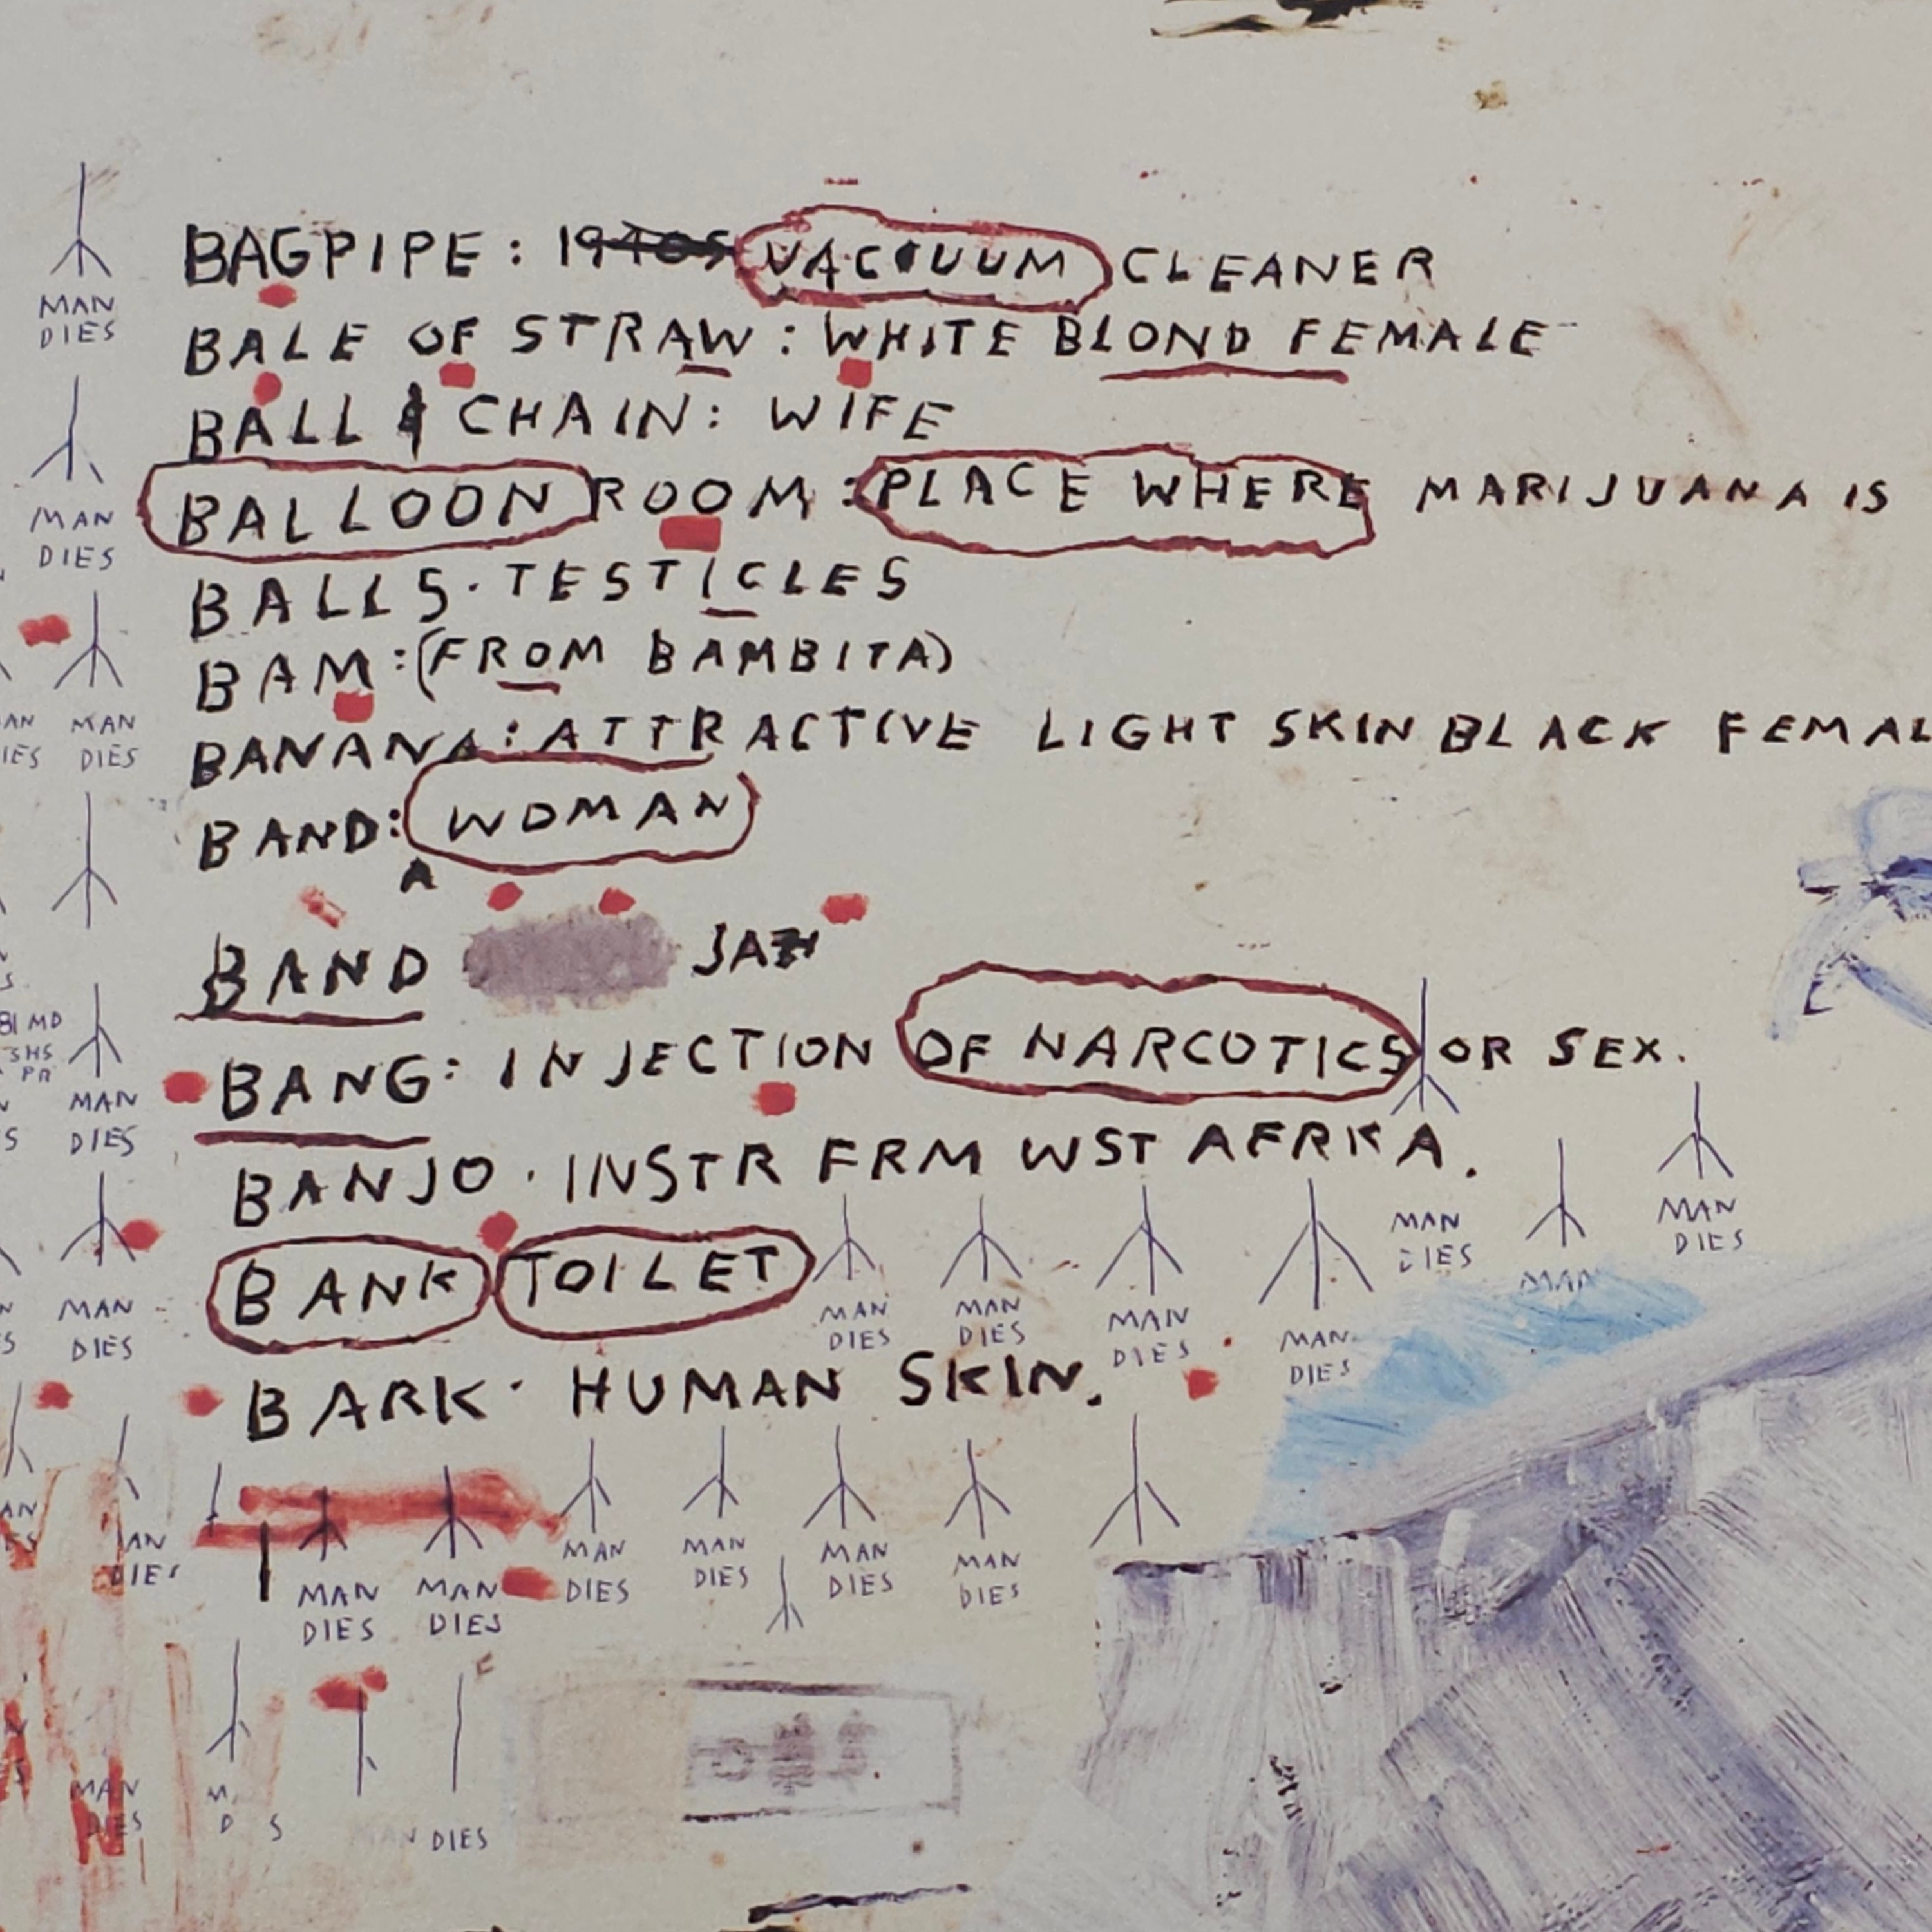 BAGPIPE: 1940S VACUUM CLEANER
BALE OF STRAW: WHITE BLOND FEMALE
BALL & CHAIN: WIFE
BALLOON ROOM: PLACE WHERE MARIJUANA IS
BALLS. TESTICLES
BAM: (FROM BAMBITA)
BANANA: ATTRACTIVE LIGHT SKIN BLACK FEMAL
BAND: WOMAN
A
BAND JAZ
BANG: INJECTION OF NARCOTICS OR SEX.
BANJO. INSTR FRM WST AFRKA.
BANK TOILET
BARK. HUMAN SKIN.
MAN
DIES
MAN
DIES
MAN
DIES
MAN
DIES
MAN
DIES
MAN
DIES
MAN
DIES
MAN
DIES
MAN
DIES
MAN
DIES
MAN
MAN
DIES
MAN
DIES
MAN
DIES
MAN
DIES
MAN
DIES
MAN
DIES
MAN
DIES
MAN
DIES
MAN DIES